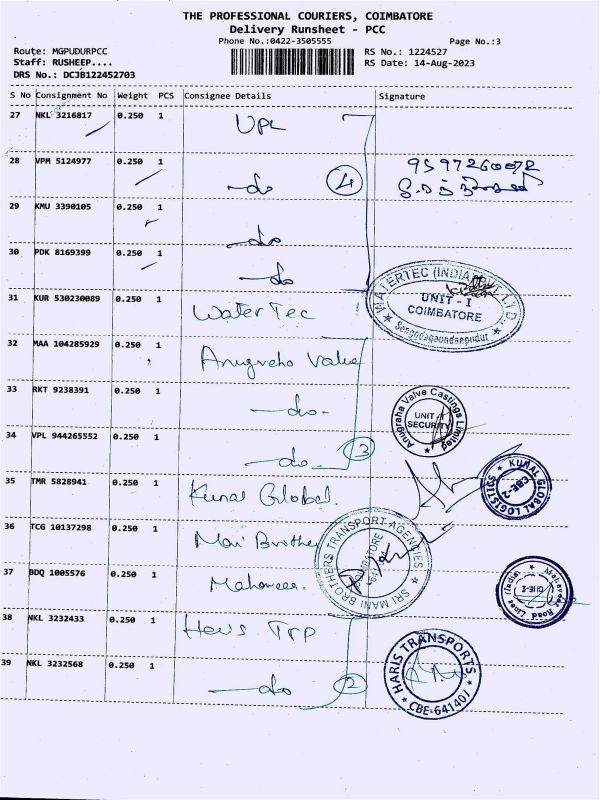 THE PROFESSIONAL COURIERS, COIMBATORE
Delivery Runsheet - PCC
Phone No.:0422-3505555
Page No.:3
Route: MGPUDURPCC
RS No.: 1224527
Staff: RUSHEEP....
RS Date: 14-Aug-2023
DRS No.: DCJB122452703
S No Consignment No Weight PCS Consignee Details Signature
27 NKL 3216817 0.250 1 UPL
28 VPM 5124977 0.250 1 —do 4 9597260072
29 KMU 3390105 0.250 1 —do
30 PDK 8169399 0.250 1 —do
31 KUR 530230089 0.250 1 Water Tec
WATERTEC (INDIA) LTD
UNIT - I
COIMBATORE
32 MAA 104285929 0.250 1 Anugraha Valve
33 RKT 9238391 0.250 1 —do-
Anugraha Valve Castings Limited
UNIT - I
SECURITY
34 VPL 944265552 0.250 1 —do. 3
35 TMR 5828941 0.250 1 Kunal Global.
KUNAL GLOBAL LOGISTICS
CBE-2
36 TCG 10137298 0.250 1 Mani Brother
SRI MANI BROTHERS TRANSPORT AGENCIES
COIMBATORE
37 BDQ 1005576 0.250 1
38 NKL 3232433 0.250 1 Haris Trp
39 NKL 3232568 0.250 1 —do 2
HARIS TRANSPORTS
CBE-641407